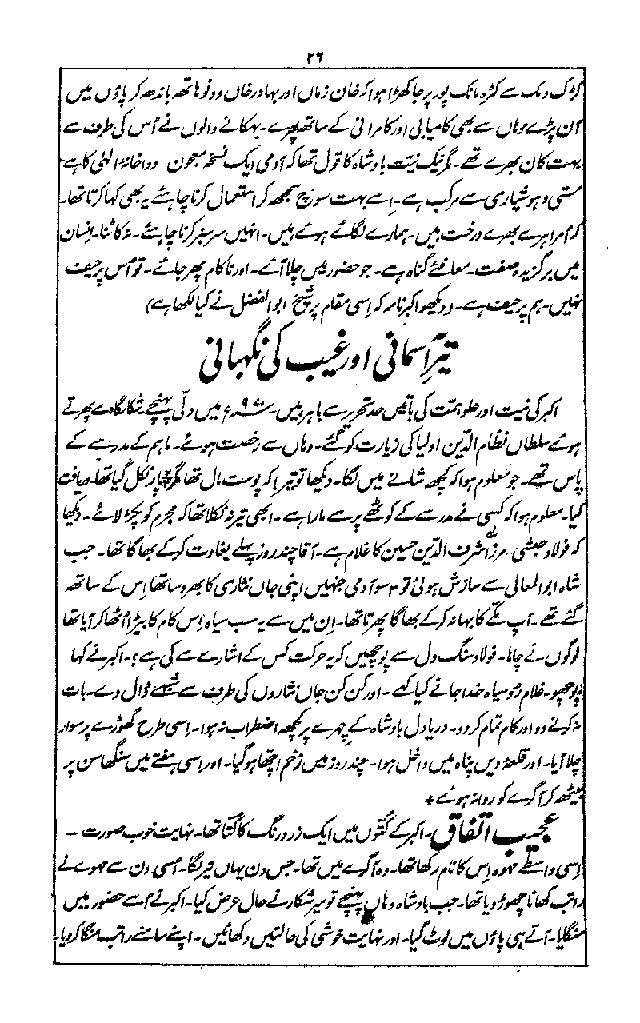 ۲۶
کڑک دمک سے کڑہ مانک پور پر جا کھڑا ہوا کہ خان زماں اور بہادر خاں دونو ہاتھ باندھ کر پاؤں میں
آن پڑے وہاں سے بھی کامیابی اور کامرانی کے ساتھ پھرے۔ بہکانے والوں نے اُس کی طرف سے
بہت کان بھرے تھے۔ مگر نیک نیت بادشاہ کا قول تھا کہ آدمی ایک نسخہ معجون دواخانۂ الٰہی کا ہے
مستی و ہوشیاری سے مرکب ہے۔ اِسے بہت سوچ سمجھ کر استعمال کرنا چاہئے یہ بھی کہا کرتا تھا۔
کہ اُمرا ہرے بھرے درخت ہیں۔ ہمارے لگائے ہوئے ہیں۔ انہیں سرسبز کرنا چاہئے۔ نہ کاٹنا۔ انسان
میں برگزیدہ صفت۔ معافئے گناہ ہے۔ جو حضور میں چلا آئے۔ اور ناکام پھر جائے۔ تو اُس پر حیف
نہیں۔ ہم پر حیف ہے۔ (دیکھو اکبر نامہ کہ اِسی مقام پر شیخ ابوالفضل نے کیا لکھا ہے)
تیرِ آسمانی اور غیب کی نگہبانی
اکبر کی نیت اور علو ہمت کی باتیں حد تحریر سے باہر ہیں۔ ۹۷۰ھ میں دلی پہنچے شکار گاہ سے پھرتے
ہوئے سلطان نظام الدین اولیا کی زیارت کو گئے۔ وہاں سے رخصت ہوئے۔ ماہم کے مدرسہ کے
پاس تھے۔ جو معلوم ہوا کہ کچھ شانے میں لگا۔ دیکھا تو تیر! کہ پوست مال تھا مگر نکل گیا تھا۔ دریافت
کیا۔ معلوم ہوا کہ کسی نے مدرسے کے کوٹھے پر سے مارا ہے۔ ابھی تیر نہ نکلا تھا کہ مجرم کو پکڑ لائے۔ دیکھا
کہ فولاد حبشی۔ مرزا شرف الدین حسین کا غلام ہے۔ آقا چند روز پہلے بغاوت کر کے بھاگا تھا۔ جب
شاہ ابوالمعالی سے سازش ہوئی تو ۳ سو آدمی جنہیں اپنی جاں نثاری کا بھروسا تھا اِس کے ساتھ
گئے تھے۔ آپ مکے کا بہانہ کر کے بھاگا پھرتا تھا۔ اِن میں سے یہ سب سیاہ اِس کام کا بیڑا اُٹھا کر آیا تھا
لوگوں نے چاہا۔ فولاد سنگ دل سے پوچھیں کہ یہ حرکت کس کے اشارے سے کی ہے؟۔ اکبر نے کہا
نہ پوچھو۔ غلام روسیاہ خدا جانے کیا کہے۔ اور کن کن جاں نثاروں کی طرف سے شبہے ڈال دے۔ بات
نہ کہنے دو اور کام تمام کر دو۔ دریا دل بادشاہ کے چہرے پر کچھ اضطراب نہ ہوا۔ اسی طرح گھوڑے پر سوار
چلا آیا۔ اور قلعۂ دیں پناہ میں داخل ہوا۔ چند روز میں زخم اچھا ہو گیا۔ اور اسی ہفتے میں سنگھاسن پر
بیٹھ کر آگرے کو روانہ ہوئے ٭
عجیب اتفاق۔ اکبر کے کتوں میں ایک زرد رنگ کا کتا تھا۔ نہایت خوب صورت۔
اسی واسطے مہوہ اِس کا نام رکھا تھا۔ وہ آگرے میں تھا۔ جس دن یہاں تیر لگا۔ اُسی دن سے مہوے نے
راتب کھانا چھوڑ دیا تھا۔ جب بادشاہ وہاں پہنچے تو میر شکار نے حال عرض کیا۔ اکبر نے اُسے حضور میں
منگایا۔ آتے ہی پاؤں میں لوٹ گیا۔ اور نہایت خوشی کی حالتیں دکھائیں۔ اپنے سامنے راتب منگا کر دیا۔